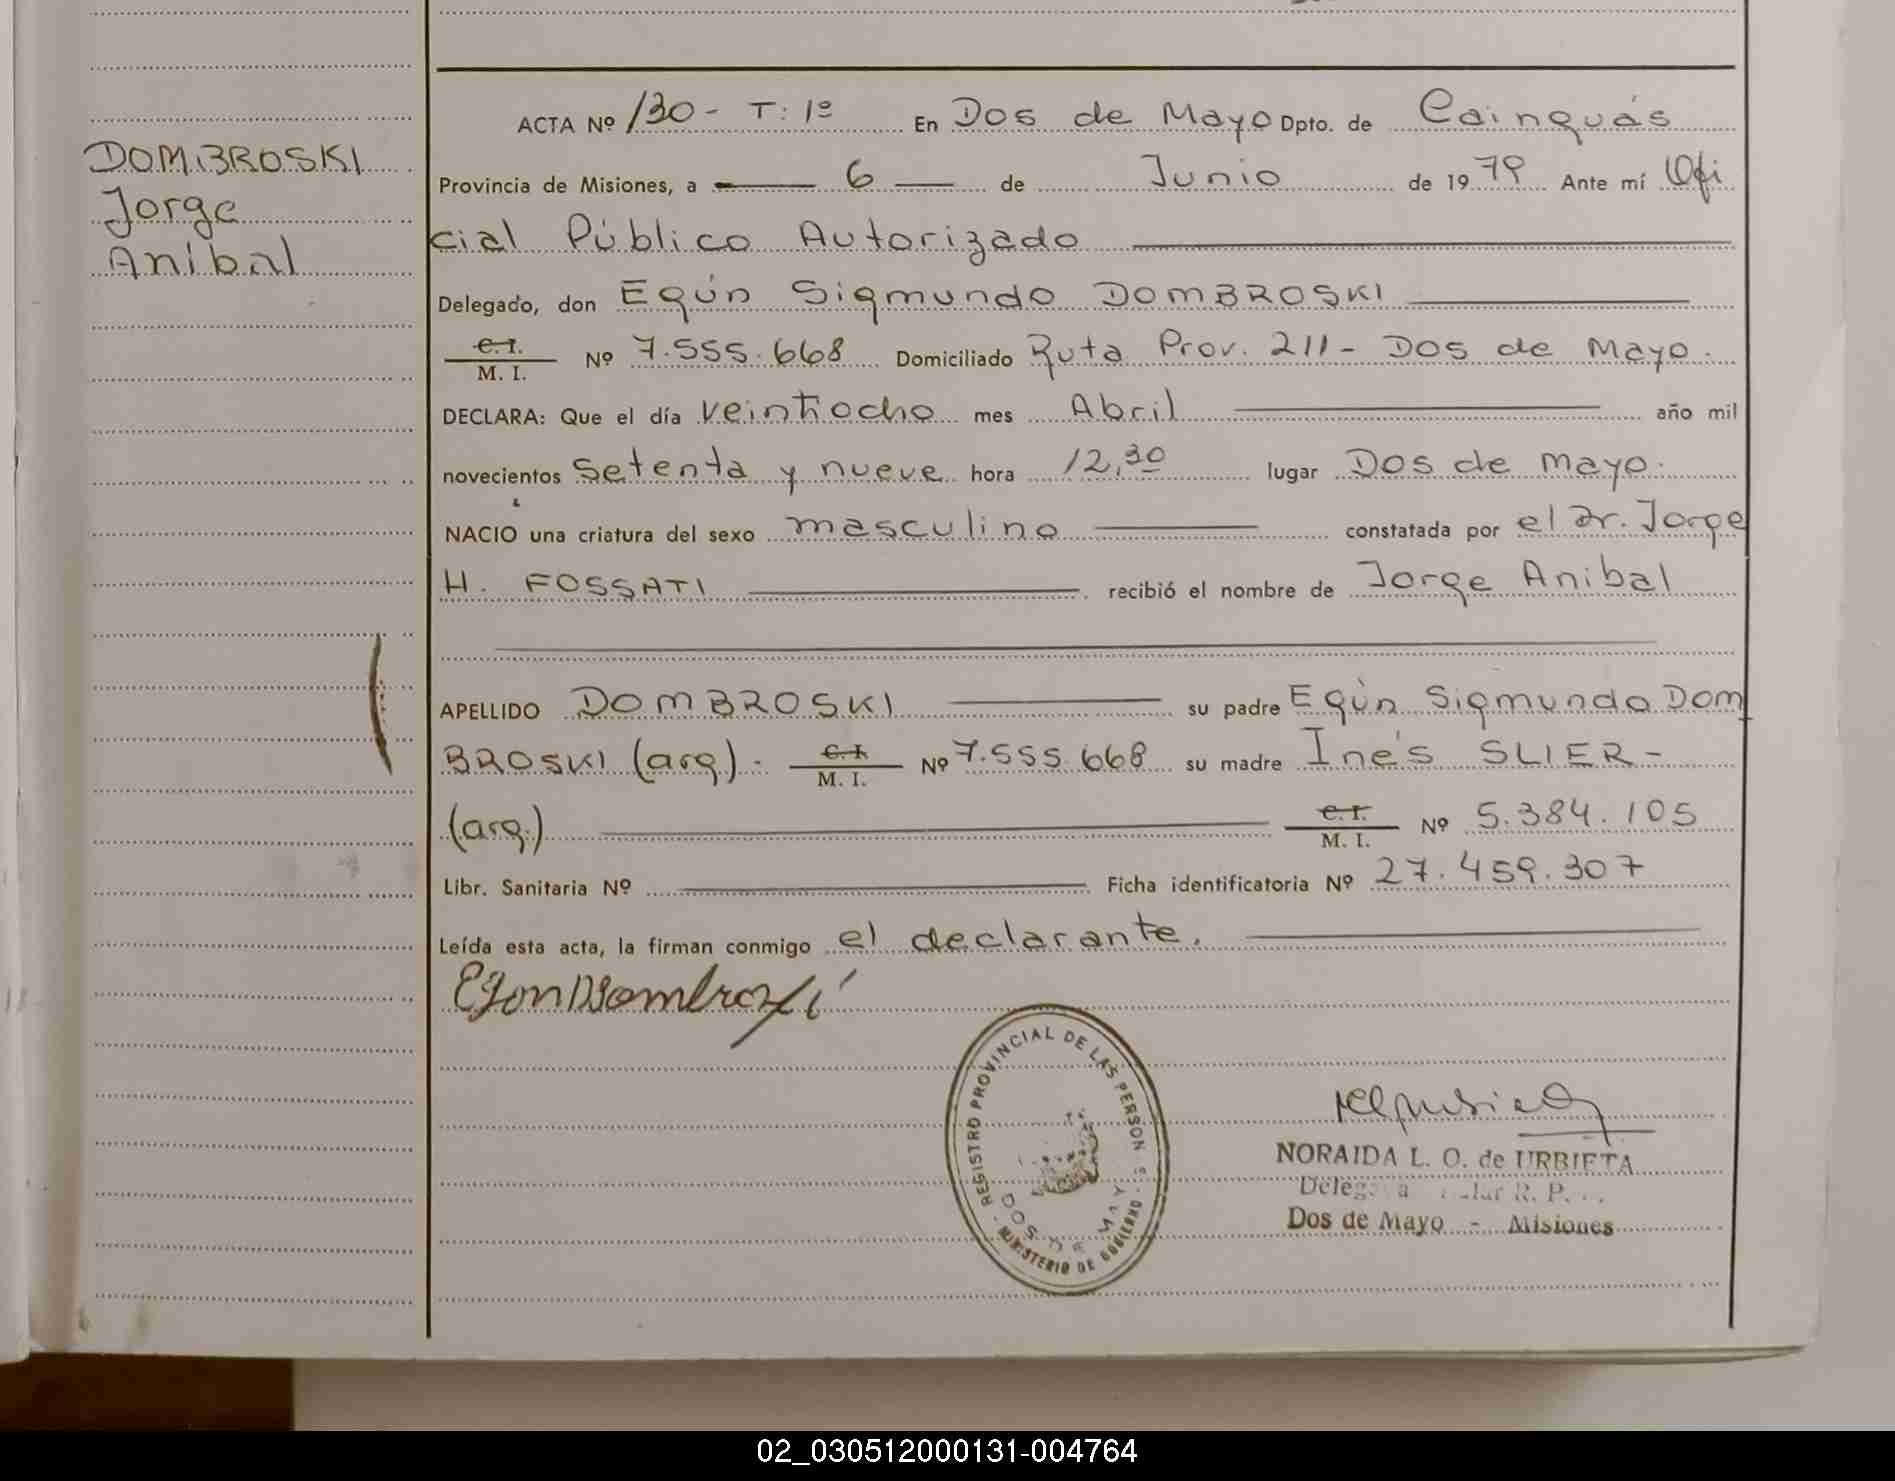 DOMBROSKI
Jorge
Anibal
ACTA Nº 130 - T: 1º En Dos de Mayo Dpto. de Cainguás
Provincia de Misiones, a 6 de Junio de 1979 Ante mí Ofi
cial Público Autorizado
Delegado, don Egún Sigmundo DOMBROSKI
C. I.
M. I. Nº 7.555.668 Domiciliado Ruta Prov. 211 - Dos de Mayo.
DECLARA: Que el día veintiocho mes Abril año mil
novecientos setenta y nueve hora 12,30 lugar Dos de Mayo.
NACIO una criatura del sexo masculino constatada por el Dr. Jorge
H. FOSSATI recibió el nombre de Jorge Anibal
APELLIDO DOMBROSKI su padre Egún Sigmundo DOM
BROSKI (arg) - C. I. M. I. Nº 7.555.668 su madre Inés SLIER -
(arg.) C. I. M. I. Nº 5.384.105
Libr. Sanitaria Nº Ficha identificatoria Nº 27.459.307
Leída esta acta, la firman conmigo el declarante.
Egon Dombroski
REGISTRO PROVINCIAL DE LAS PERSONAS
MINISTERIO DE GOBIERNO
DOS DE MAYO
NORAIDA L. O. de URBIETA
R. P.
Dos de Mayo - Misiones
02_030512000131-004764